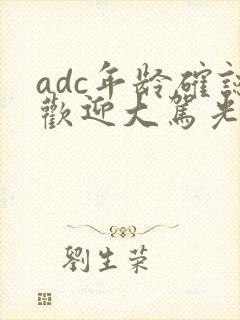 adc年龄確認
歡迎大駕光
劉生荣